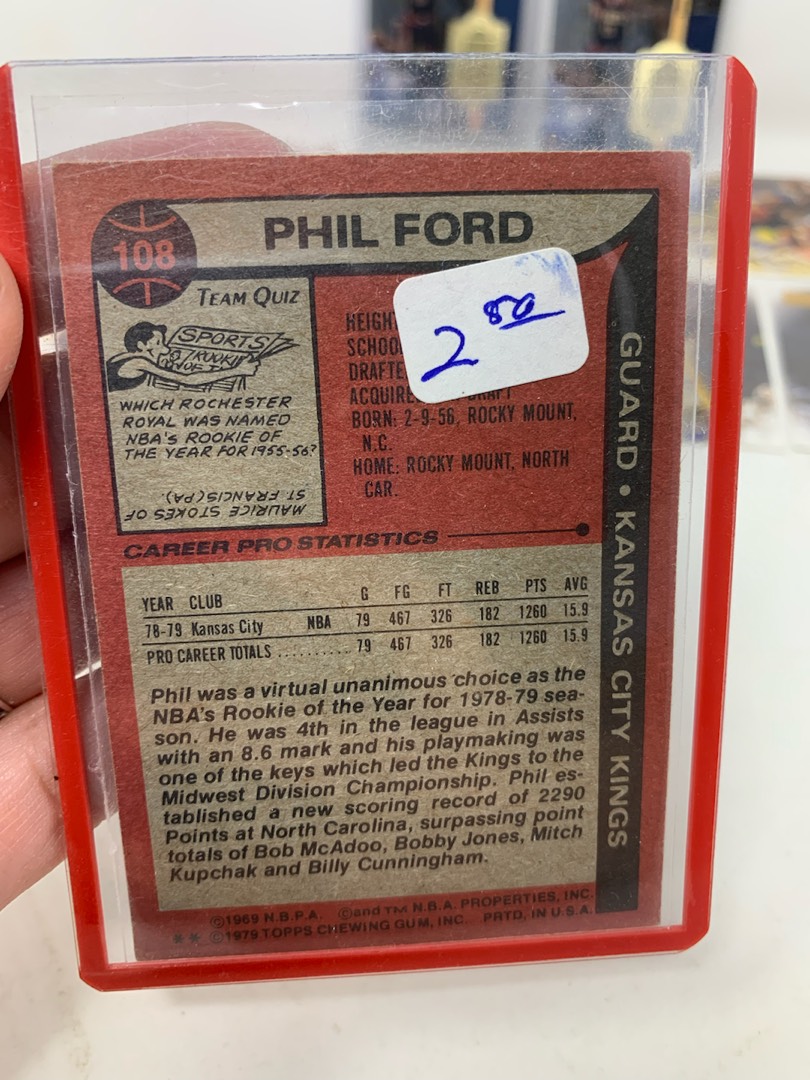 108
PHIL FORD
TEAM QUIZ
SPORTS
WHICH ROCHESTER
ROYAL WAS NAMED
NBA'S ROOKIE OF
THE YEAR FOR 1955-56?
MAURICE STOKES OF
ST. FRANCIS (PA).
2 80
BORN: 2-9-56, ROCKY MOUNT,
N.C.
HOME: ROCKY MOUNT, NORTH
CAR.
GUARD • KANSAS CITY KINGS
CAREER PRO STATISTICS
YEAR CLUB G FG FT REB PTS AVG
78-79 Kansas City NBA 79 467 326 182 1260 15.9
PRO CAREER TOTALS .......... 79 467 326 182 1260 15.9
Phil was a virtual unanimous choice as the
NBA's Rookie of the Year for 1978-79 sea-
son. He was 4th in the league in Assists
with an 8.6 mark and his playmaking was
one of the keys which led the Kings to the
Midwest Division Championship. Phil es-
tablished a new scoring record of 2290
Points at North Carolina, surpassing point
totals of Bob McAdoo, Bobby Jones, Mitch
Kupchak and Billy Cunningham.
©1969 N.B.P.A. ©and TM N.B.A. PROPERTIES, INC.
** ©1979 TOPPS CHEWING GUM, INC. PRTD. IN U.S.A.